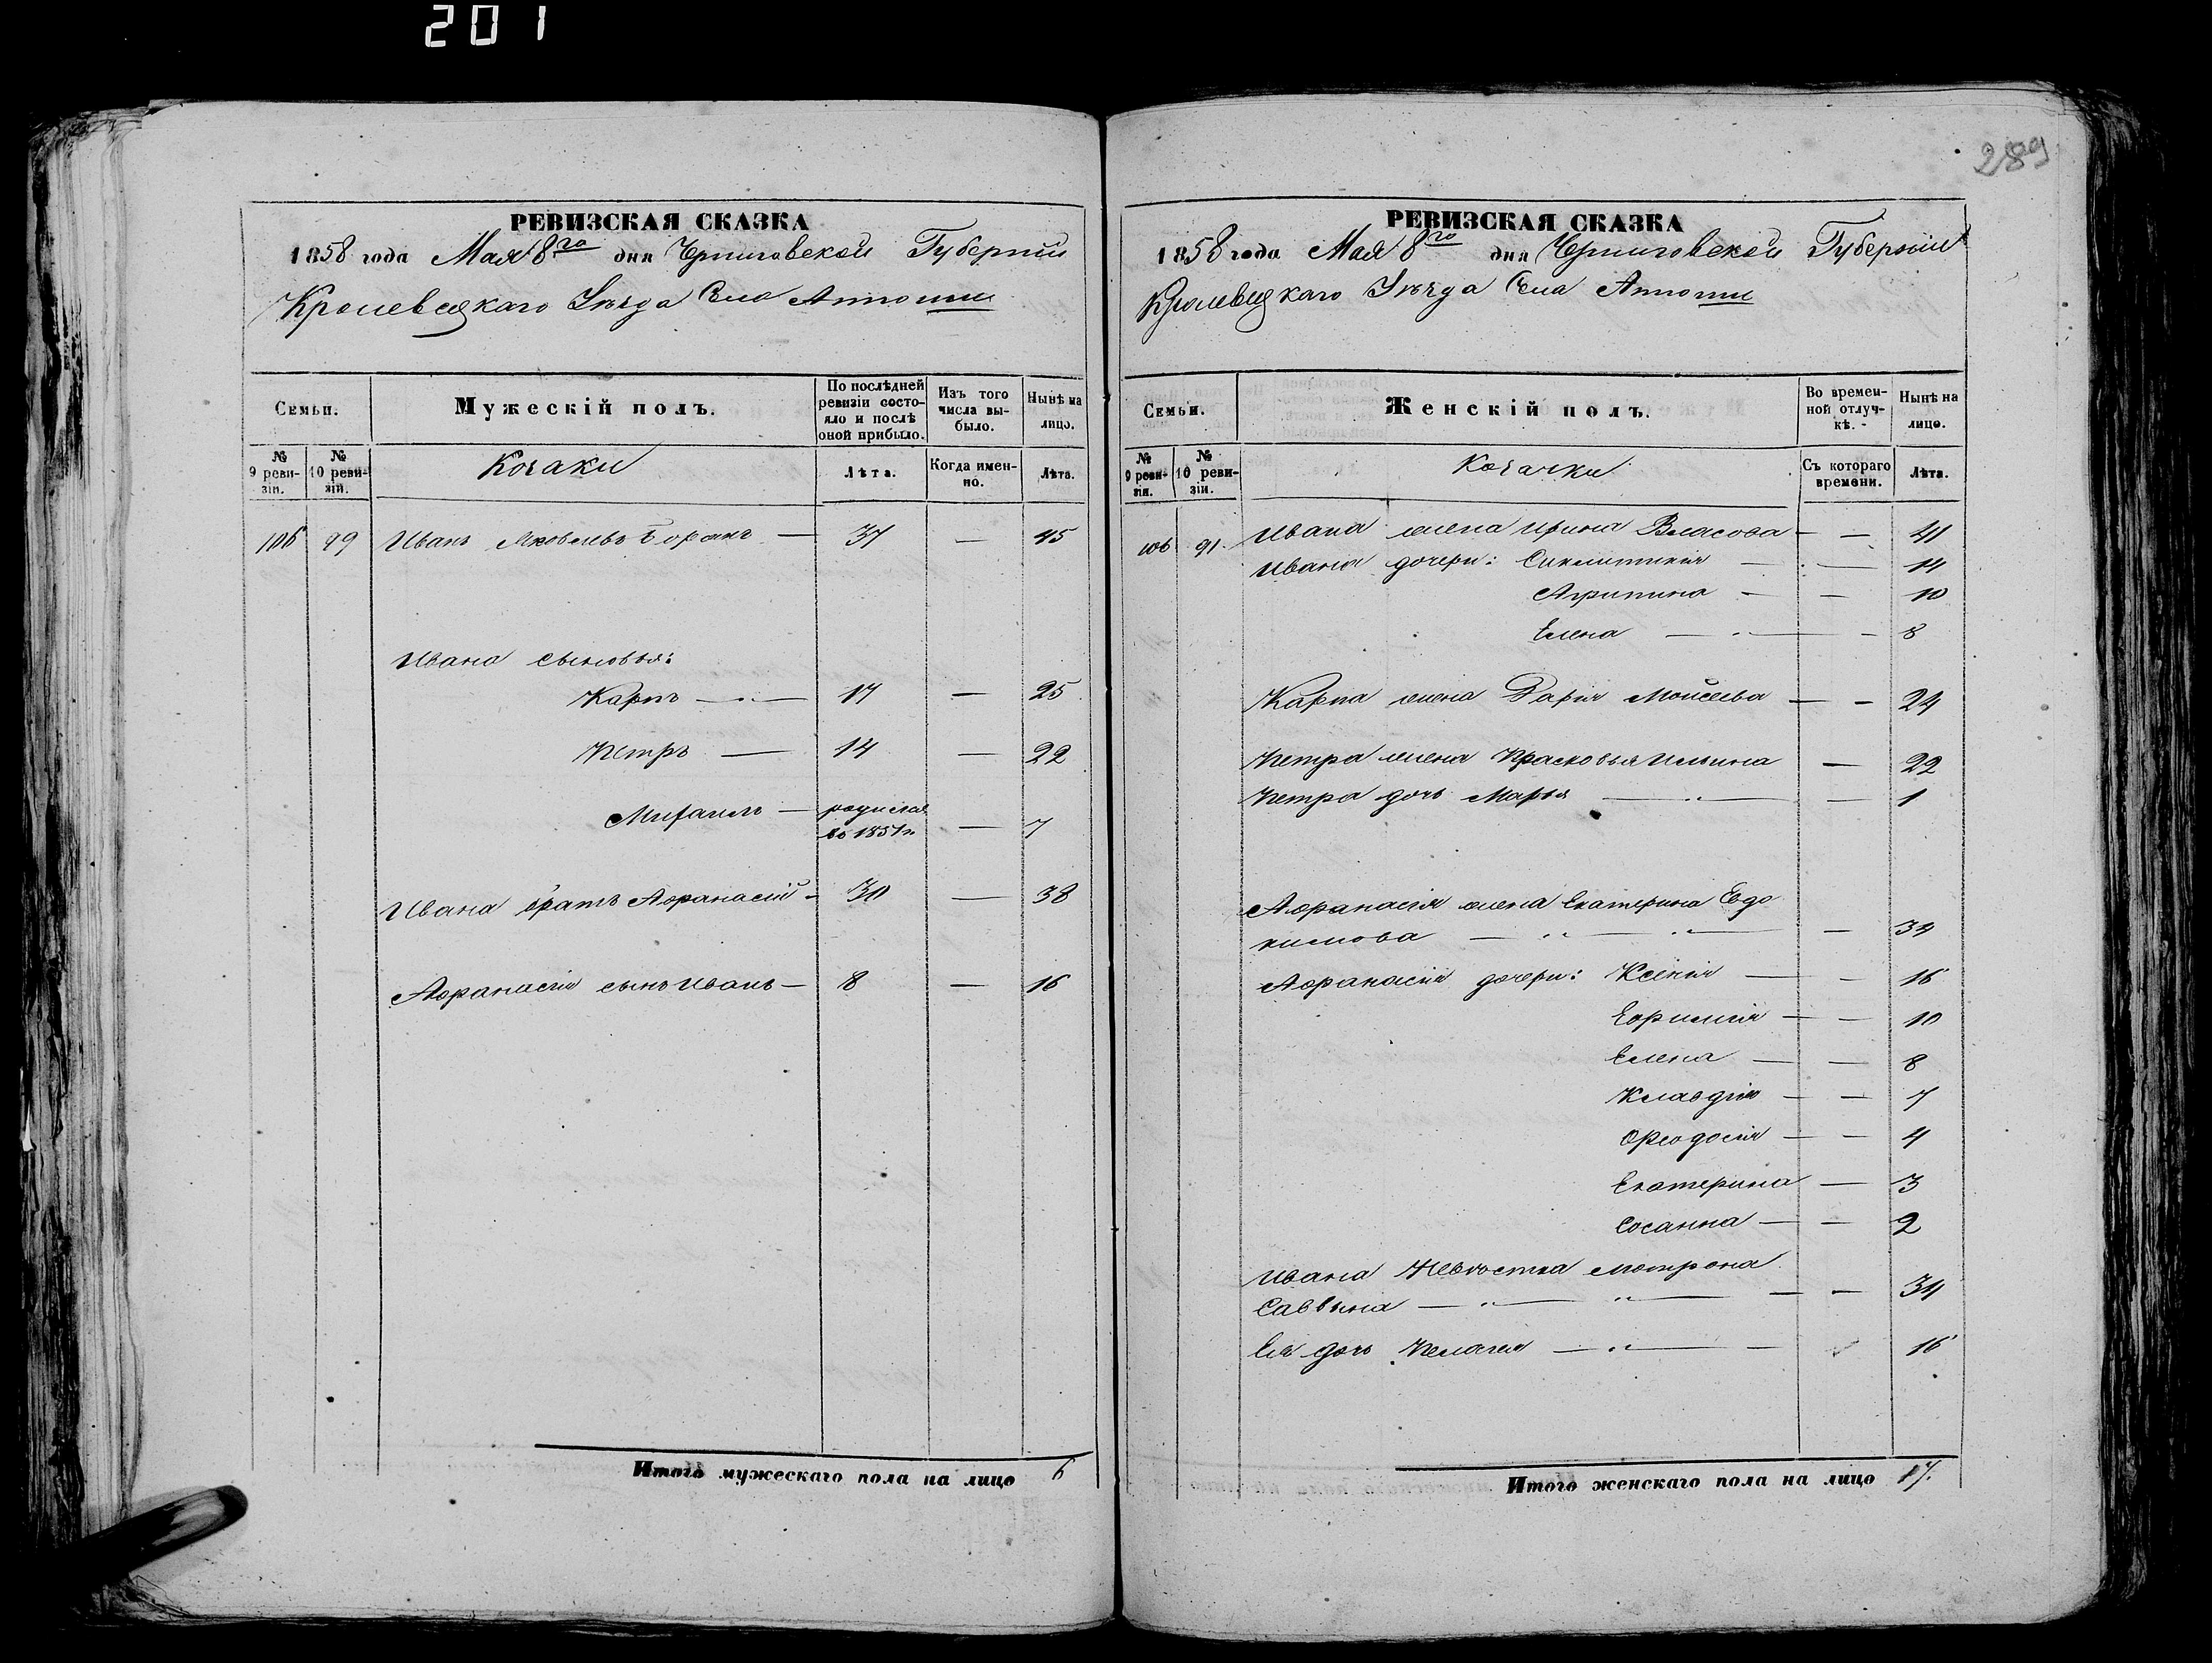 201
289
РЕВИЗСКАЯ СКАЗКА
1858 года Мая 8го дня Черниговской Губерніи
Кролевецкаго Уѣзда Села
Семьи.
Мужескій полъ.
По послѣдней ревизіи состояло и послѣ оной прибыло.
Изъ того числа выбыло.
Нынѣ на лицо.
№ 9 ревизіи.
№ 10 ревизіи.
Козаки
Лѣта.
Когда именно.
Лѣта.
106 99 Иванъ Яковлевъ — 37 — 45
Ивана сыновья:
Карпъ — " — 17 — 25
Петръ — 14 — 22
Михаилъ — родился во 1851 г. — 7
Ивана братъ Афанасій — 30 — 38
Афанасія сынъ Иванъ — 8 — 16
Итого мужескаго пола на лицо 6
РЕВИЗСКАЯ СКАЗКА
1858 года Мая 8го дня Черниговской Губерніи
Кролевецкаго Уѣзда Села
Семьи.
Женскій полъ.
Во временной отлучкѣ.
Нынѣ на лицо.
№ 9 ревизіи.
№ 10 ревизіи.
Козачки
Съ котораго времени.
Лѣта.
106 91. Ивана жена Ирина Власова — — 41
Ивана дочери: Синклитикія — — 14
Агрипина — — 10
Елена — " — — 8
Карпа жена Дарія Моисеева — — 24
Петра жена Прасковья Ильина — 22
Петра дочь Марья — " — — 1
Афанасія жена Екатерина Евдо
кимова — " — " — — 34
Афанасія дочери: Ксенія — — 16
Ефимія — — 10
Елена — — 8
Клавдія — — 7
Феодосія — — 4
Екатерина — 3
Сосанна — — 2
Ивана Невѣстка Мотрона
Саввина — " — " — — — 34
Ея дочь Пелагея — " — — 16
Итого женскаго пола на лицо 17.